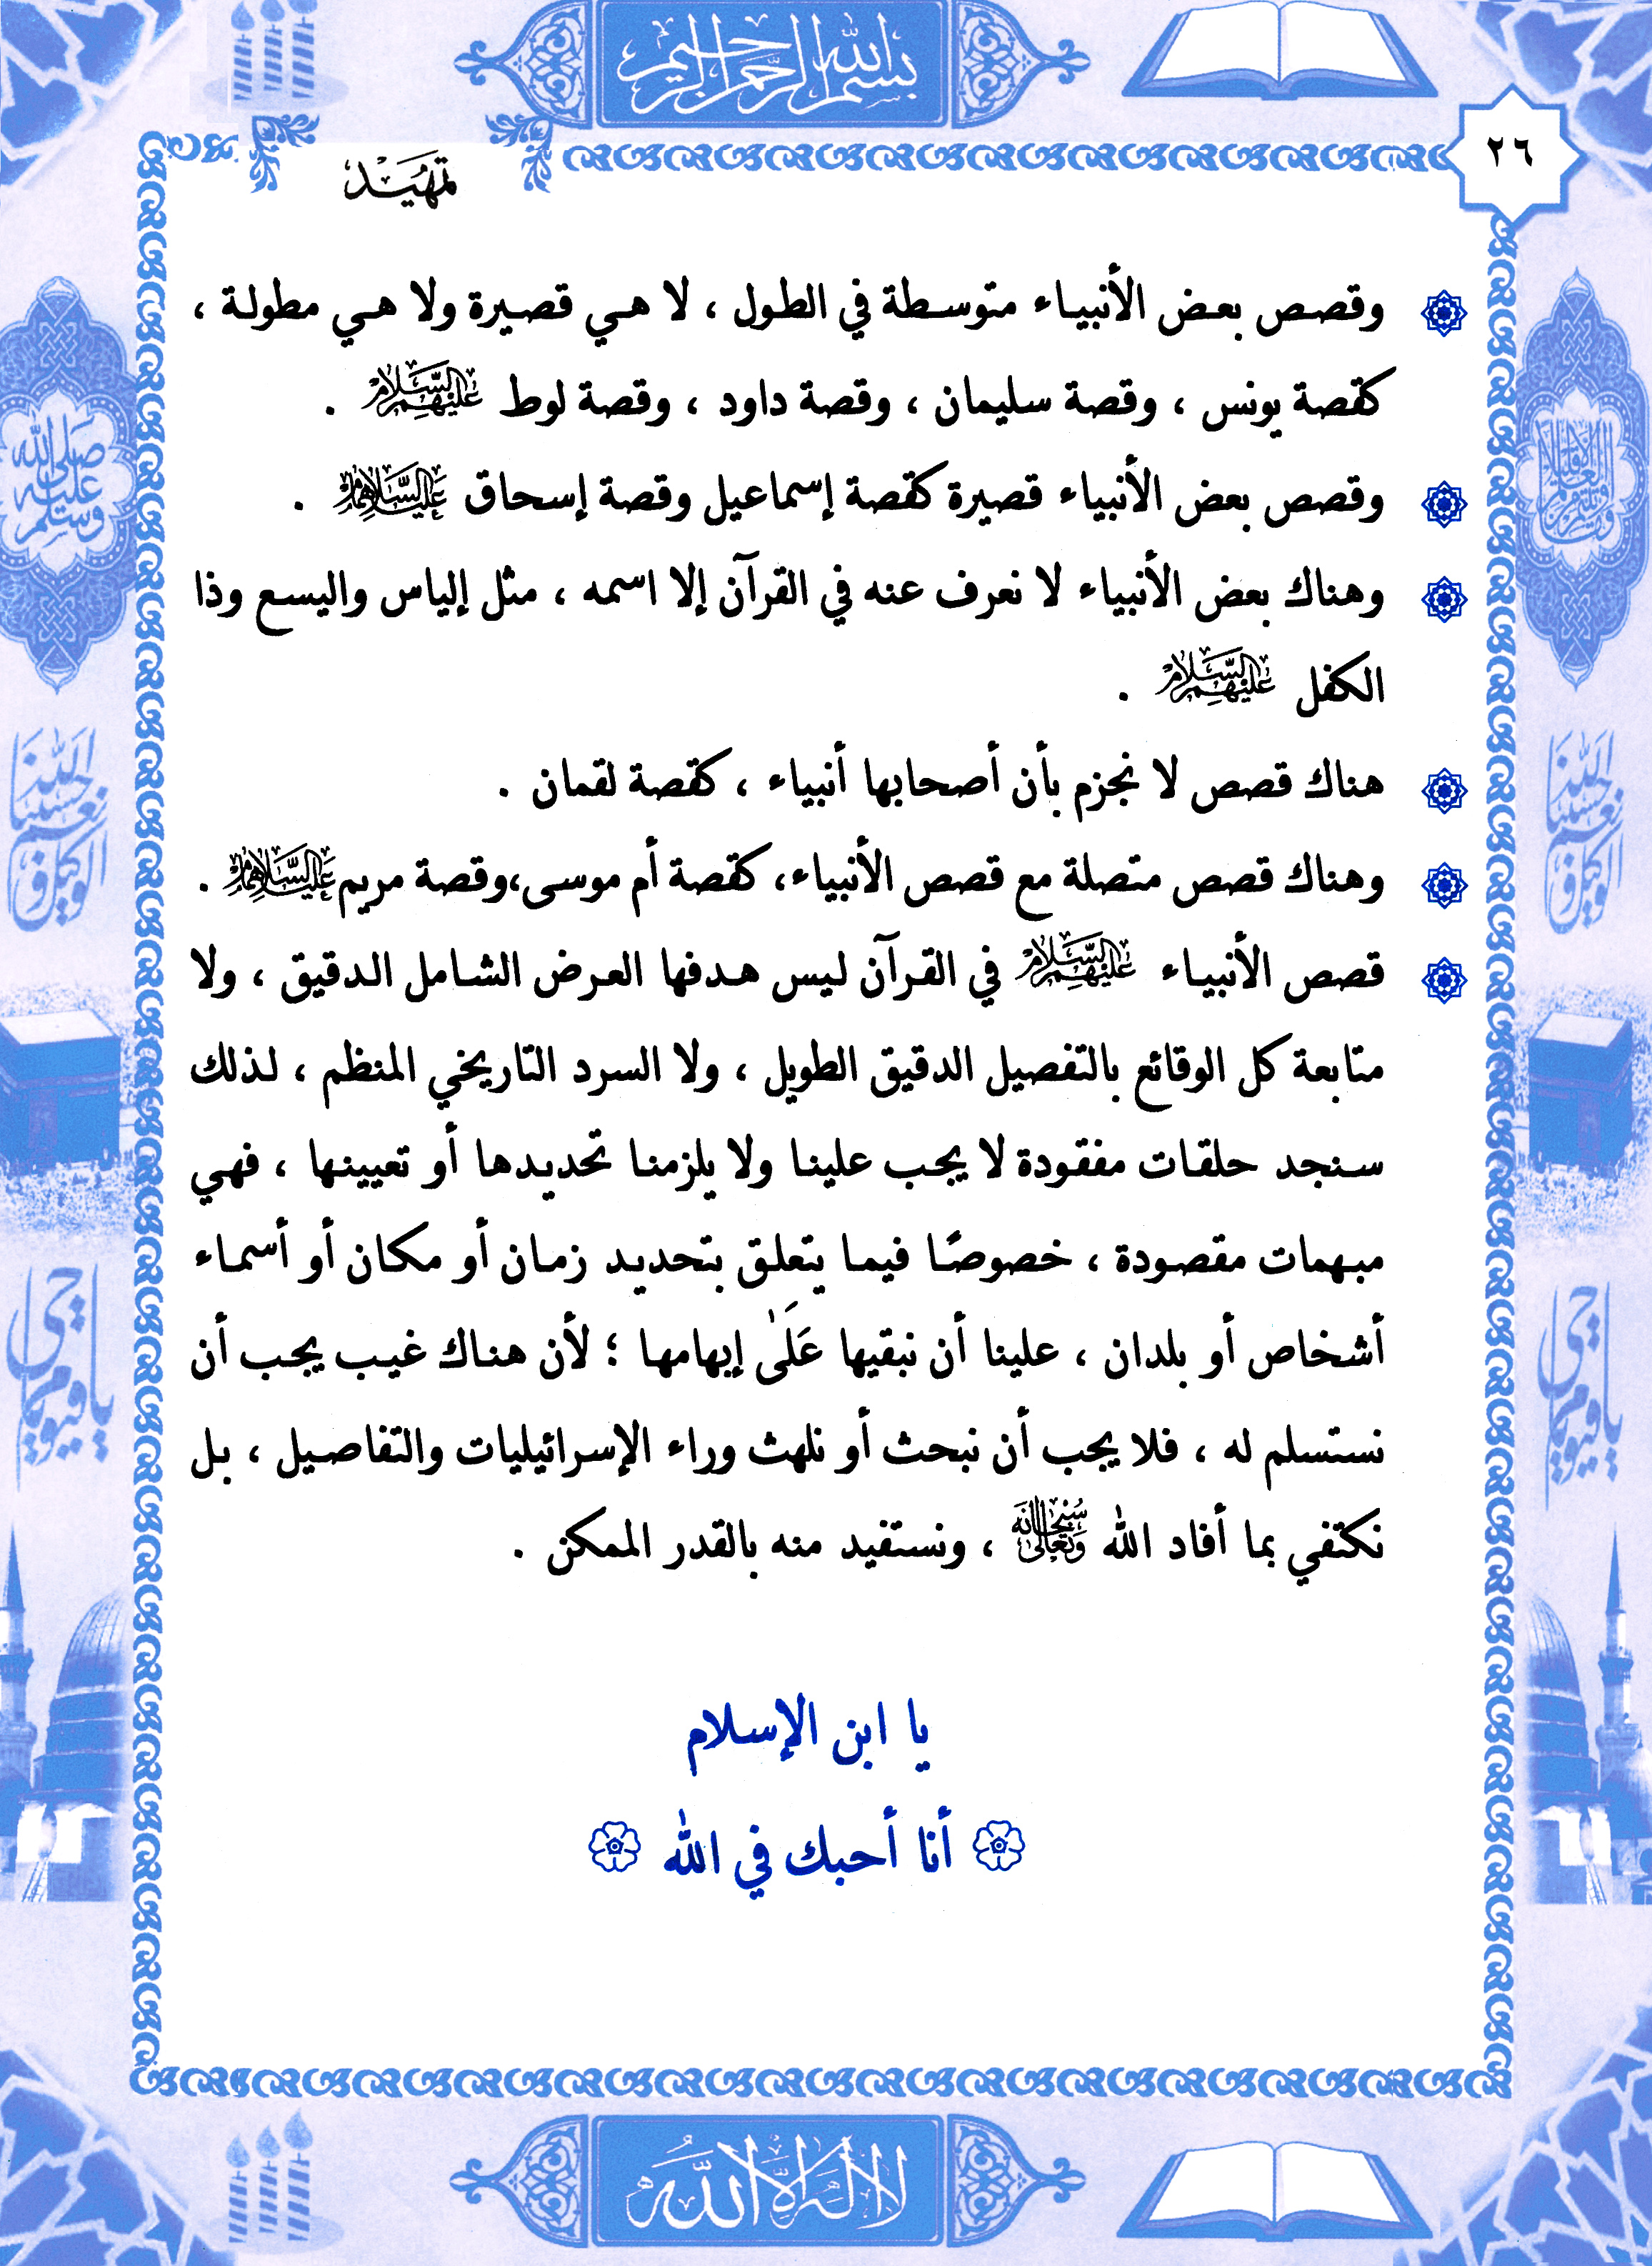 بسم الله الرحمن الرحيم
٢٦
تمهيد
وقصص بعض الأنبياء متوسطة في الطول ، لا هي قصيرة ولا هي مطولة ،
كقصة يونس ، وقصة سليمان ، وقصة داود ، وقصة لوط عليهم السلام .
وقصص بعض الأنبياء قصيرة كقصة إسماعيل وقصة إسحاق عليهما السلام .
وهناك بعض الأنبياء لا نعرف عنه في القرآن إلا اسمه ، مثل إلياس واليسع وذا
الكفل عليهم السلام .
هناك قصص لا نجزم بأن أصحابها أنبياء ، كقصة لقمان .
وهناك قصص متصلة مع قصص الأنبياء، كقصة أم موسى،وقصة مريم عليهما السلام .
قصص الأنبياء عليهم السلام في القرآن ليس هدفها العرض الشامل الدقيق ، ولا
متابعة كل الوقائع بالتفصيل الدقيق الطويل ، ولا السرد التاريخي المنظم ، لذلك
سنجد حلقات مفقودة لا يجب علينا ولا يلزمنا تحديدها أو تعيينها ، فهي
مبهمات مقصودة ، خصوصًا فيما يتعلق بتحديد زمان أو مكان أو أسماء
أشخاص أو بلدان ، علينا أن نبقيها عَلَىٰ إبهامها ؛ لأن هناك غيب يجب أن
نستسلم له ، فلا يجب أن نبحث أو نلهث وراء الإسرائيليات والتفاصيل ، بل
نكتفي بما أفاد الله سبحانه وتعالى ، ونستفيد منه بالقدر الممكن .
يا ابن الإسلام
أنا أحبك في الله
صلى الله عليه وسلم
حسبنا الله ونعم الوكيل
حسبنا الله ونعم الوكيل
يا حي يا قيوم
يا حي يا قيوم
لا إله إلا الله